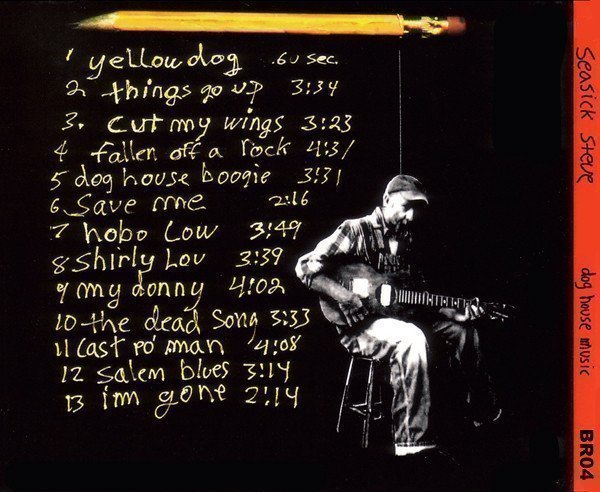 1 yellow dog .60 sec.
2 things go up 3:34
3. cut my wings 3:23
4 fallen off a rock 4:31
5 dog house boogie 3:31
6 save me 2:16
7 hobo low 3:49
8 shirly lou 3:39
9 my donny 4:02
10 the dead song 3:33
11 last po' man 4:08
12 salem blues 3:14
13 i'm gone 2:14
Seasick Steve
dog house music
BR04